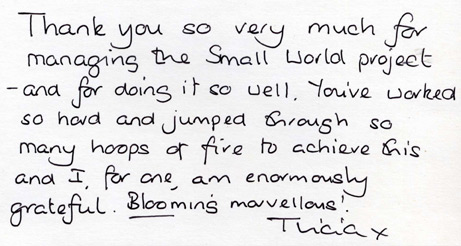 Thank you so very much for
managing the Small World project
- and for doing it so well. You've worked
so hard and jumped through so
many hoops of fire to achieve this
and I, for one, am enormously
grateful. Blooming marvellous!
Tricia x